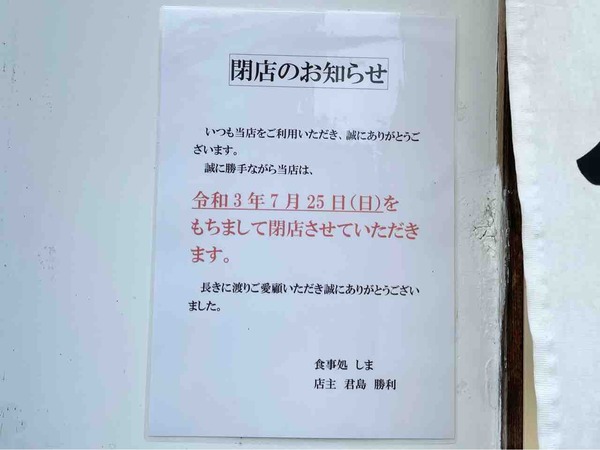 閉店のお知らせ
いつも当店をご利用いただき、誠にありがとうご
ざいます。
誠に勝手ながら当店は、
令和3年7月25日(日)を
もちまして閉店させていただき
ます。
長きに渡りご愛顧いただき誠にありがとうござい
ました。
食事処 しま
店主 君島 勝利